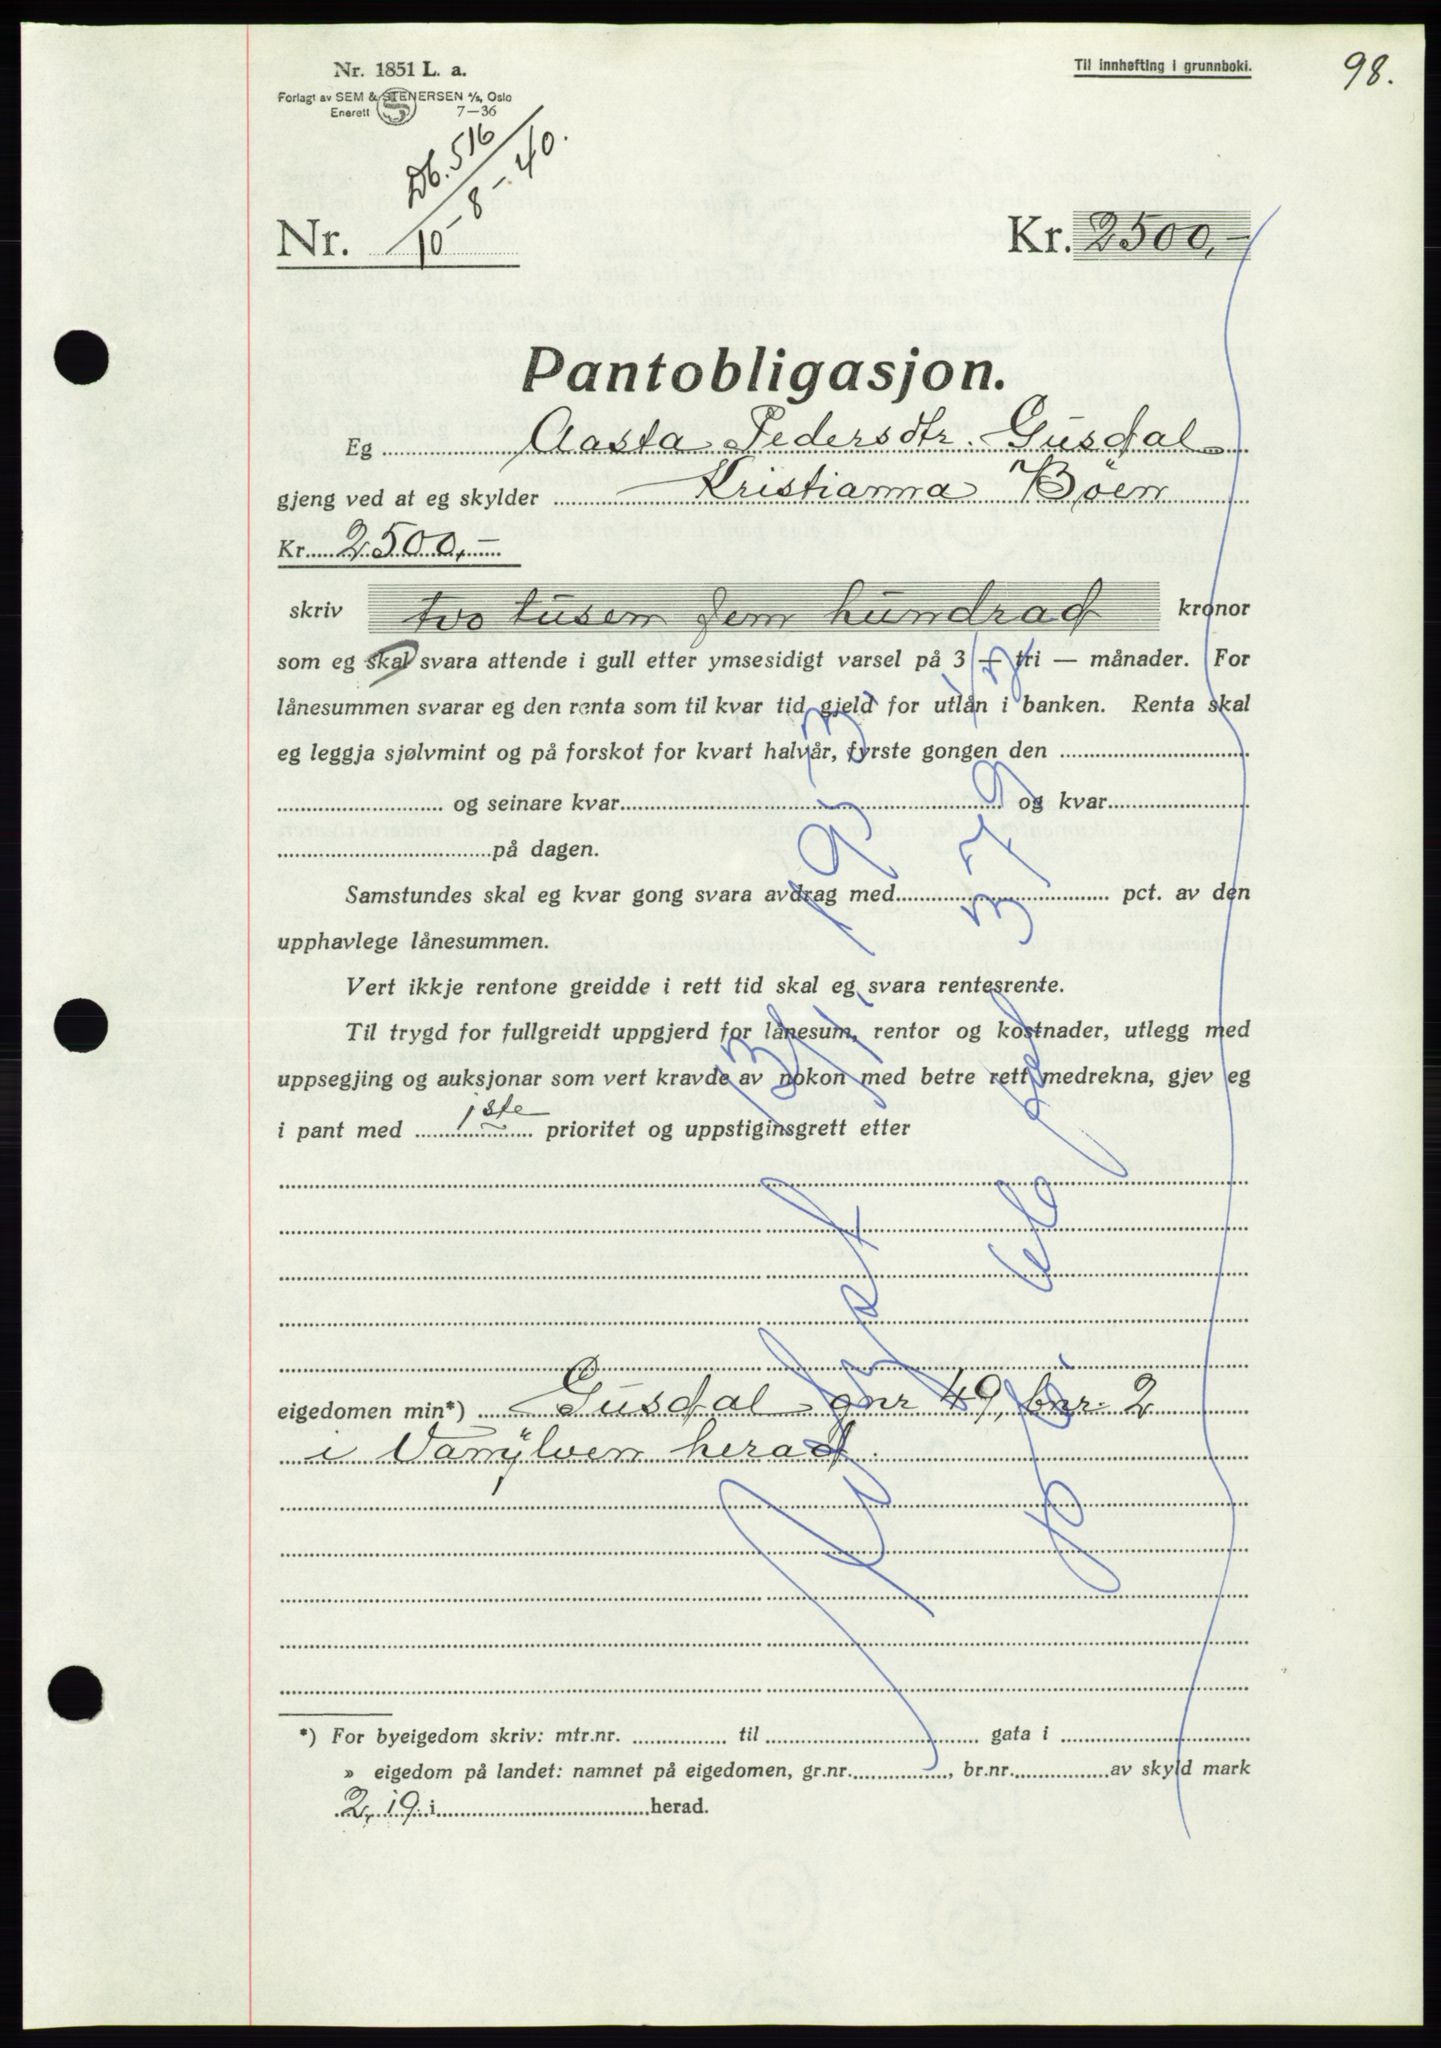 Nr. 1851 L. a.
Til innhefting i grunnboki.
98.
Forlagt av SEM & STENERSEN A/s, Oslo
Enerett 7—36
Db. 516
Nr. 10-8-40.
Kr. 2500,-
Pantobligasjon.
Eg Aasta Pedersdtr. Gusdal
gjeng ved at eg skylder Kristianna Böen
Kr. 2500,-
skriv tvo tusen fem hundrad kronor
som eg skal svara attende i gull etter ymsesidigt varsel på 3 — tri — månader. For
lånesummen svarar eg den renta som til kvar tid gjeld for utlån i banken. Renta skal
eg leggja sjølvmint og på forskot for kvart halvår, fyrste gongen den
og seinare kvar og kvar
på dagen.
Samstundes skal eg kvar gong svara avdrag med pct. av den
upphavlege lånesummen.
Vert ikkje rentone greidde i rett tid skal eg svara rentesrente.
Til trygd for fullgreidt uppgjerd for lånesum, rentor og kostnader, utlegg med
uppsegjing og auksjonar som vert kravde av nokon med betre rett medrekna, gjev eg
i pant med 1ste prioritet og uppstiginsgrett etter
eigedomen min*) Gusdal gnr 49, bnr. 2
i Vanylven herad.
*) For byeigedom skriv: mtr.nr. til gata i
» eigedom på landet: namnet på eigedomen, gr.nr. , br.nr. av skyld mark
2,19 i herad.